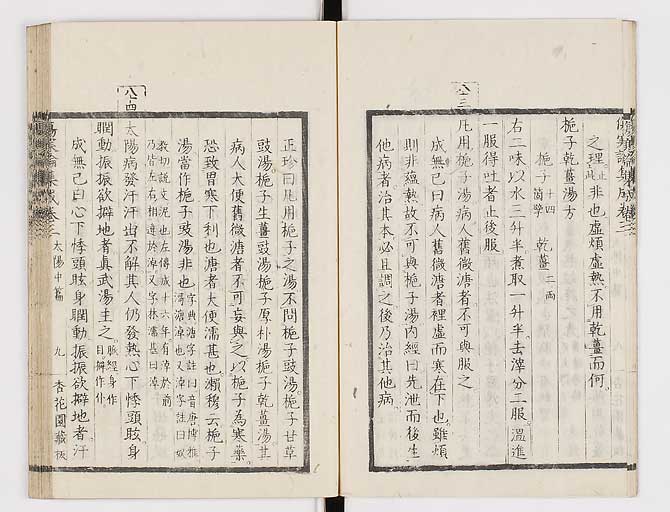 之理止此非也虛煩虛熱不用乾薑而何
梔子乾薑湯方
梔子十四箇擘 乾薑二兩
右二味以水三升半煮取一升半去滓分二服溫進
一服得吐者止後服
八三
凡用梔子湯病人舊微溏者不可與服之
成無己曰病人舊微溏者裡虛而寒在下也雖煩
則非蘊熱故不可與梔子湯內經曰先泄而後生
他病者治其本必且調之後乃治其他病
正珍曰凡用梔子之湯不問梔子豉湯梔子甘草
豉湯梔子生薑豉湯梔子厚朴湯梔子乾薑湯其
病人大便舊微溏者不可妄與之以梔子為寒藥
恐致胃寒下利也溏者大便濡甚也瀨穆云梔子
湯當作梔子豉湯非也
八四
太陽病發汗汗出不解其人仍發熱心下悸頭眩身
瞤動振振欲擗地者真武湯主之脈經身作目擗作仆
成無己曰心下悸頭眩身瞤動振振欲擗地者汗
傷寒論集成卷三 太陽中篇 九 杏花園藏板